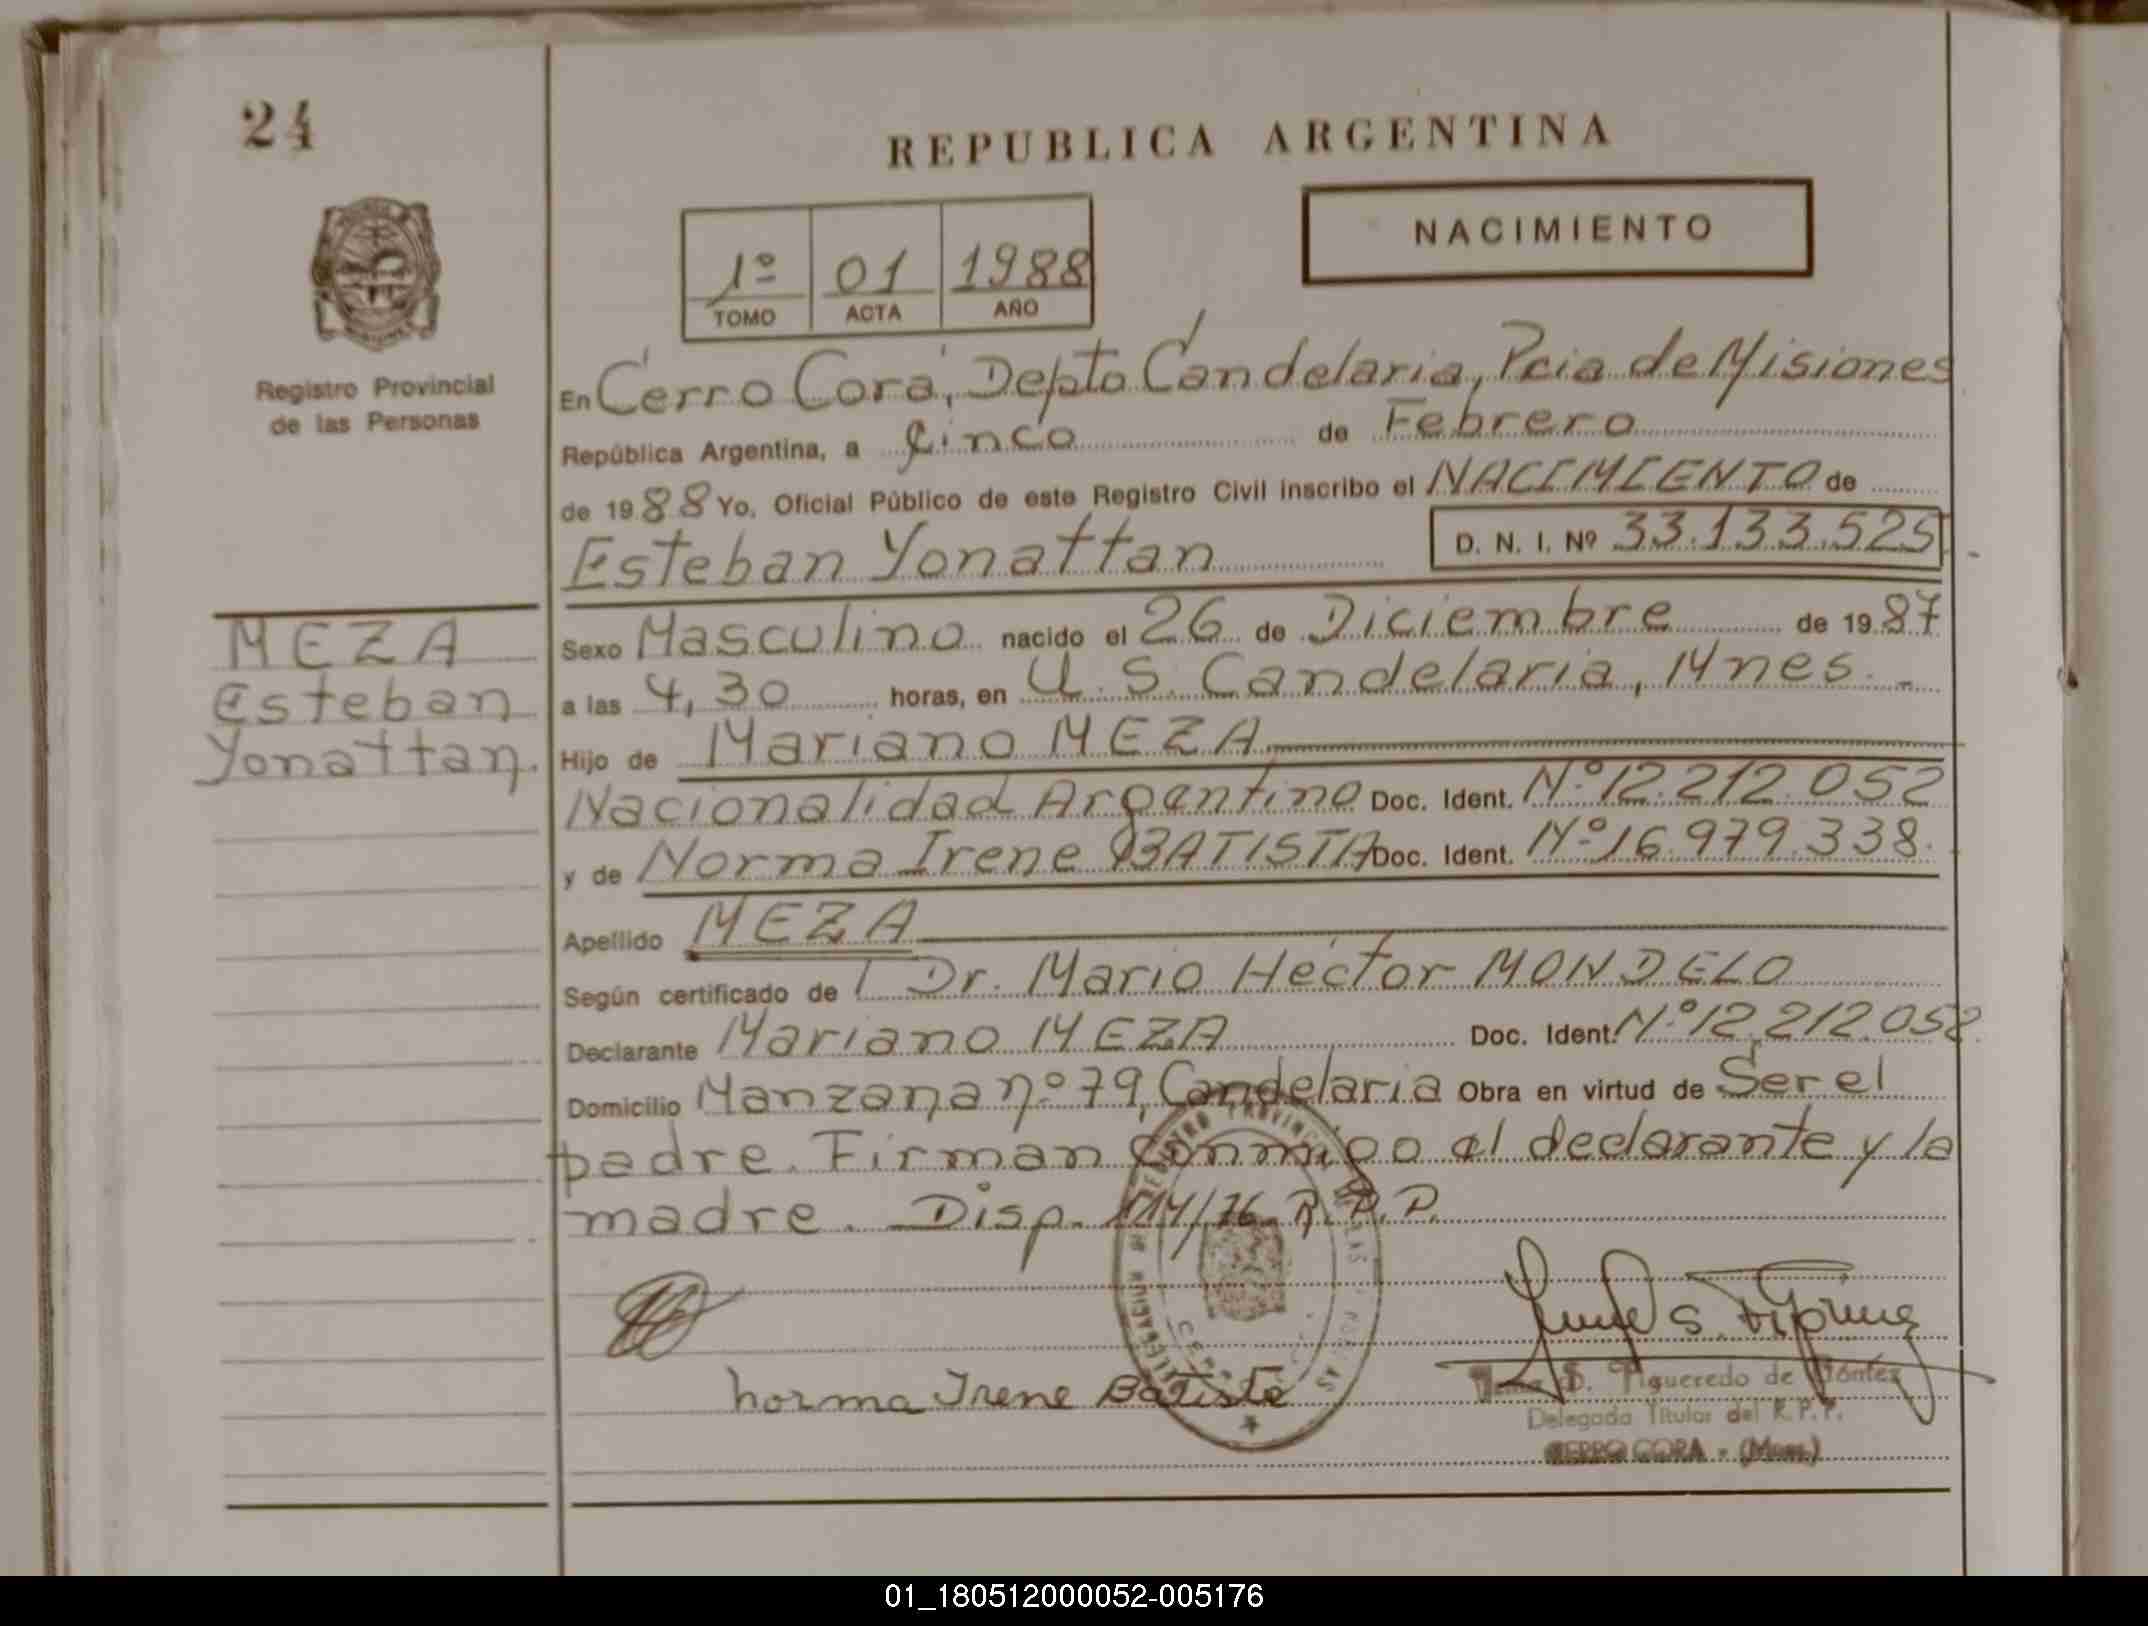 24
REPUBLICA ARGENTINA
NACIMIENTO
1º 01 1988
TOMO ACTA AÑO
Registro Provincial
de las Personas
En Cerro Corá, Depto Candelaria, Pcia de Misiones
República Argentina, a Cinco de Febrero
de 1988 Yo, Oficial Público de este Registro Civil inscribo el NACIMIENTO de
Esteban Yonattan D. N. I. Nº 33.133.525
MEZA
Esteban
Yonattan.
Sexo Masculino nacido el 26 de Diciembre de 1987
a las 4,30 horas, en U.S. Candelaria, Mnes. -
Hijo de Mariano MEZA
Nacionalidad Argentino Doc. Ident. Nº 12.212.052
y de Norma Irene BATISTA Doc. Ident. Nº 16.979.338.
Apellido MEZA
Según certificado de Dr. Mario Héctor MONDELO
Declarante Mariano MEZA Doc. Ident. Nº 12.212.052
Domicilio Manzana nº 79, Candelaria Obra en virtud de Ser el
padre. Firman conmigo el declarante y la
madre. Disp. /76 R.P.P.
norma Irene Batista
S. Figueredo de
Delegada Titular del R.P.P.
CERRO CORA - (Mnes.)
01_180512000052-005176